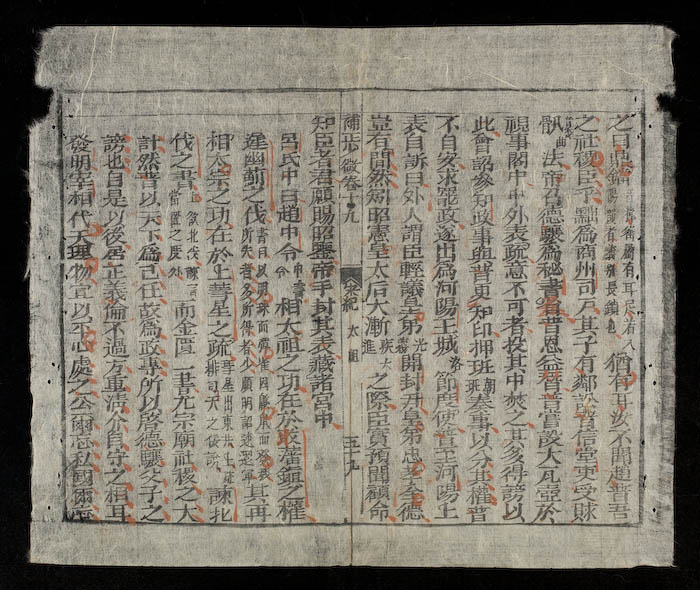 之曰鼎鐺猶有耳汝不聞趙普吾
之社稷臣乎黜爲商州司戶其子有鄰訟普信堂吏受賕
骫曲法帝召德驤爲秘書省普恩益替普嘗設大瓦壺於
視事閣中中外表疏意不可者投其中焚之其多得謗以
此會詔參知政事與普更知印押班奏事以分其權普
不自安求罷政遂出爲河陽王城洛節度使普至河陽上
表自訴曰外人謂臣輕議皇弟光義開封尹皇弟忠孝全德
豈有間然矧昭憲皇太后大漸疾大進之際臣實預聞顧命
補正少微卷十九 宋紀 太祖 五十九
知臣者君願賜昭鑒帝手封其表藏諸宮中
呂氏中曰趙中令中書令相太祖之功在於收藩鎭之權
遲幽薊之伐其再
相太宗之功在於上彗星之疏彗星出東井上疏排司天之佞說諫北
伐之書而金匱一書尤宗廟社稷之大
計然普以天下爲己任故爲政專所以啓德驤父子之
謗也自是以後居正義倫不過方重清介自守之相耳
發明宰相代天理物宜以平心處之公爾忘私國爾忘